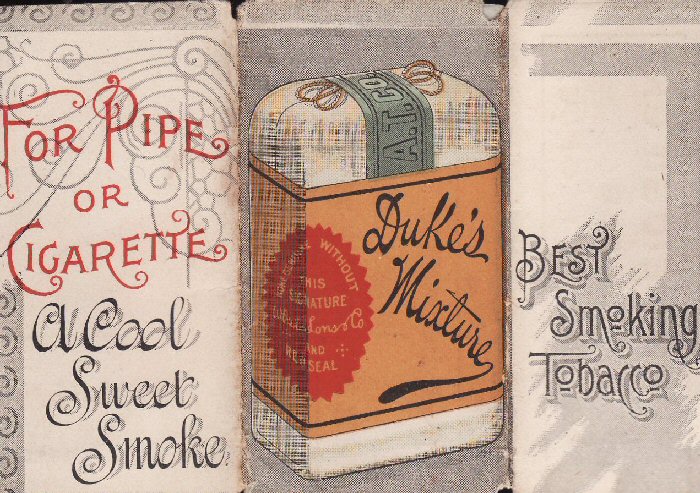 FOR PIPE
OR
CIGARETTE
A Cool
Sweet
Smoke.
A.T. CO.
Duke's
Mixture
WITHOUT
THIS
SIGNATURE
Sons & Co
AND
RED SEAL
BEST
Smoking
Tobacco